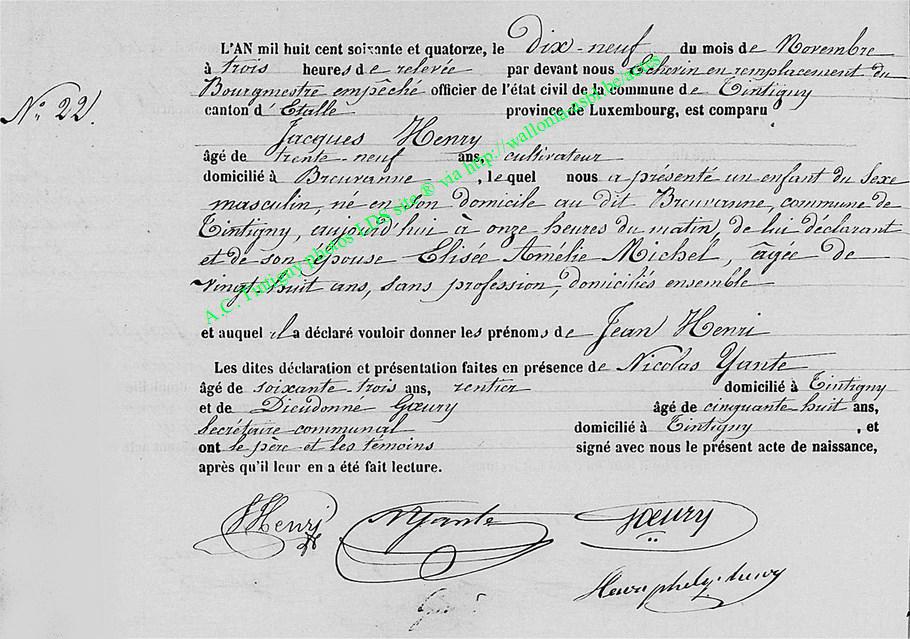 L'AN mil huit cent soixante et quatorze, le Dix-neuf du mois de Novembre
à trois heures de relevée par devant nous Echevin en remplacement du
Bourgmestre empêché officier de l'état civil de la commune de Tintigny
canton d'Etalle province de Luxembourg, est comparu
N° 22.
Jacques Henry
âgé de trente-neuf ans, cultivateur
domicilié à Breuvanne, lequel nous a présenté un enfant du sexe
masculin, né en son domicile au dit Breuvanne, commune de
Tintigny, aujourd'hui à onze heures du matin, de lui déclarant
et de son épouse Elisée Amélie Michel, âgée de
vingt huit ans, sans profession, domiciliés ensemble
A.C. Tintigny photos LDS site ® via http://wallonia.nsbr.be/actes
et auquel il a déclaré vouloir donner les prénoms de Jean Henri
Les dites déclaration et présentation faites en présence de Nicolas Yante
âgé de soixante trois ans, rentier domicilié à Tintigny
et de Dieudonné Gœury âgé de cinquante huit ans,
Secrétaire communal domicilié à Tintigny, et
ont le père et les témoins signé avec nous le présent acte de naissance,
après qu'il leur en a été fait lecture.
JHenri
NYante
Gœury